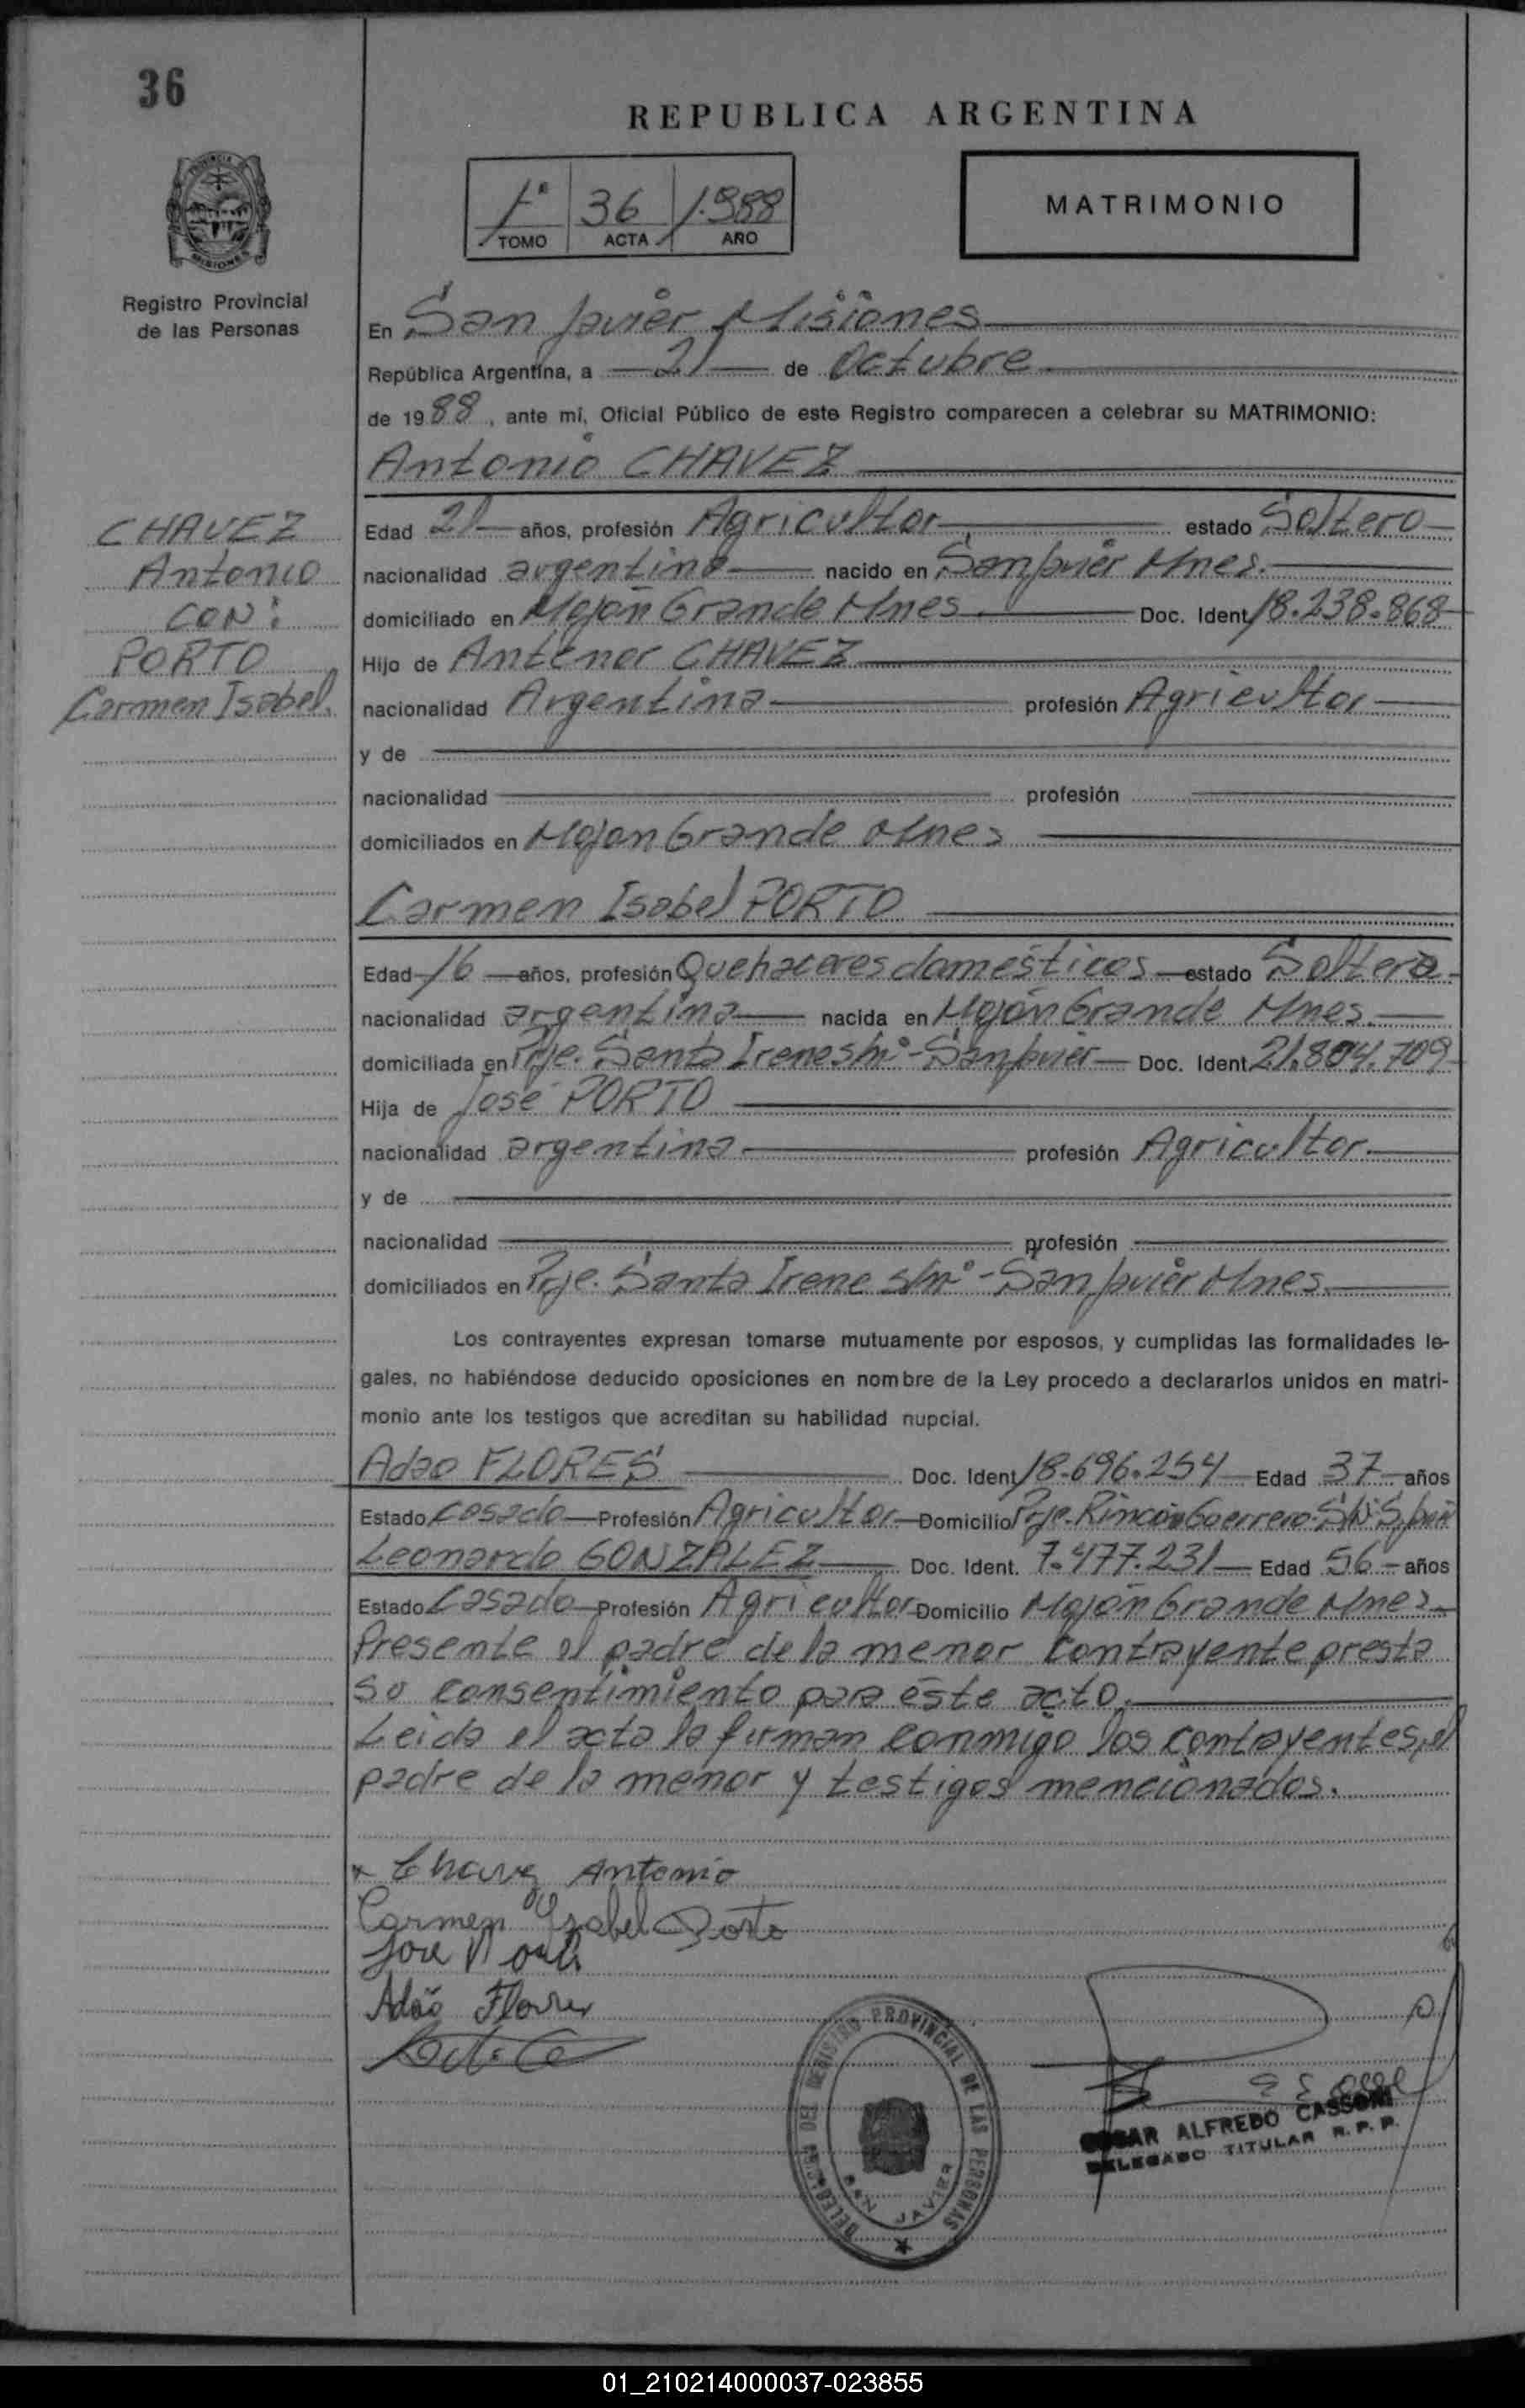 36
REPUBLICA ARGENTINA
1º 36 1.988
TOMO ACTA AÑO
MATRIMONIO
PROVINCIA
MISIONES
Registro Provincial
de las Personas
En San Javier Misiones
República Argentina, a 21 de Octubre
de 1988, ante mí, Oficial Público de este Registro comparecen a celebrar su MATRIMONIO:
Antonio CHAVEZ
CHAVEZ
Antonio
CON:
PORTO
Carmen Isabel.
Edad 21 años, profesión Agricultor estado Soltero
nacionalidad argentina nacido en San Javier Mnes.
domiciliado en Mojón Grande Mnes Doc. Ident. 18.238.868
Hijo de Antenor CHAVEZ
nacionalidad Argentina profesión Agricultor
y de
nacionalidad profesión
domiciliados en Mojon Grande Mnes
Carmen Isabel PORTO
Edad 16 años, profesión Quehaceres domésticos estado Soltera
nacionalidad argentina nacida en Mojón Grande Mnes.
domiciliada en Pje. Santa Irene s/nº - San Javier Doc. Ident. 21.804.709
Hija de José PORTO
nacionalidad argentina profesión Agricultor
y de
nacionalidad profesión
domiciliados en Pje. Santa Irene s/nº - San Javier Mnes.
Los contrayentes expresan tomarse mutuamente por esposos, y cumplidas las formalidades le-
gales, no habiéndose deducido oposiciones en nombre de la Ley procedo a declararlos unidos en matri-
monio ante los testigos que acreditan su habilidad nupcial.
Adao FLORES Doc. Ident. 18.696.254 Edad 37 años
Estado Casado Profesión Agricultor Domicilio Pje. Rincón Guerrero S/Nº S. Javier
Leonardo GONZALEZ Doc. Ident. 7.477.231 Edad 56 años
Estado Casado Profesión Agricultor Domicilio Mojón Grande Mnes.
Presente el padre de la menor contrayente presta
su consentimiento para éste acto.
Leida el acta la firman conmigo los contrayentes, el
padre de la menor y testigos mencionados.
x Chavez Antonio
Carmen Ysabel Porto
Jose
Adão Flores
DEL REGISTRO PROVINCIAL DE LAS PERSONAS
SAN JAVIER
ALFREDO CASSONI
DELEGADO TITULAR R. P. P.
01_210214000037-023855